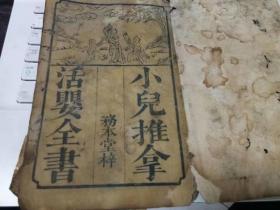 小兒推拿
務本堂梓
活嬰全書